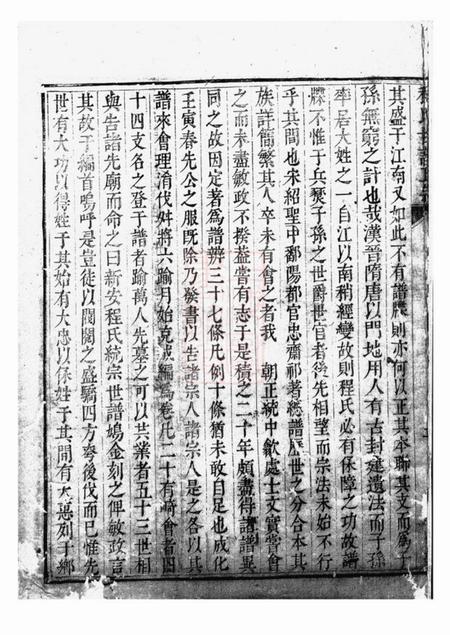 其盛于江南又如此不有譜牒則亦何以正其本聯其支而爲子
孫無窮之計也哉漢晉隋唐以門地用人有古封建遺法而子孫
率居大姓之一自江以南稍經變故則程氏必有保障之功故譜
牒不惟于兵燹子孫之世爵世官者後先相望而宗法未始不行
乎其間也宋紹聖中鄱陽都官忠肅祁著總譜歷世之分合本其
族詳簡繁其人卒未有會之者我 朝正統中歙處士文實嘗會
之而未盡敏政不揆蓋嘗有志于是積之二十年頗盡得諸譜異
同之故因定著爲譜辨三十七條凡例十條猶未敢自足也成化
壬寅春先公之服既除乃發書以告諸宗人諸宗人是之各以其
譜來會理淆伐舛將六踰月始克成編爲卷凡二十有畸會者四
十四支名之登于譜者踰萬人先墓之可以共業者五十三世相
與告諸先廟而命之曰新安程氏統宗世譜鳩金刻之俾敏政言
其故于編首嗚呼是豈徒以閥閱之盛驕四方夸後伐而已惟先
世有大功以得姓于其始有大忠以保姓于其間有大惠列于鄉